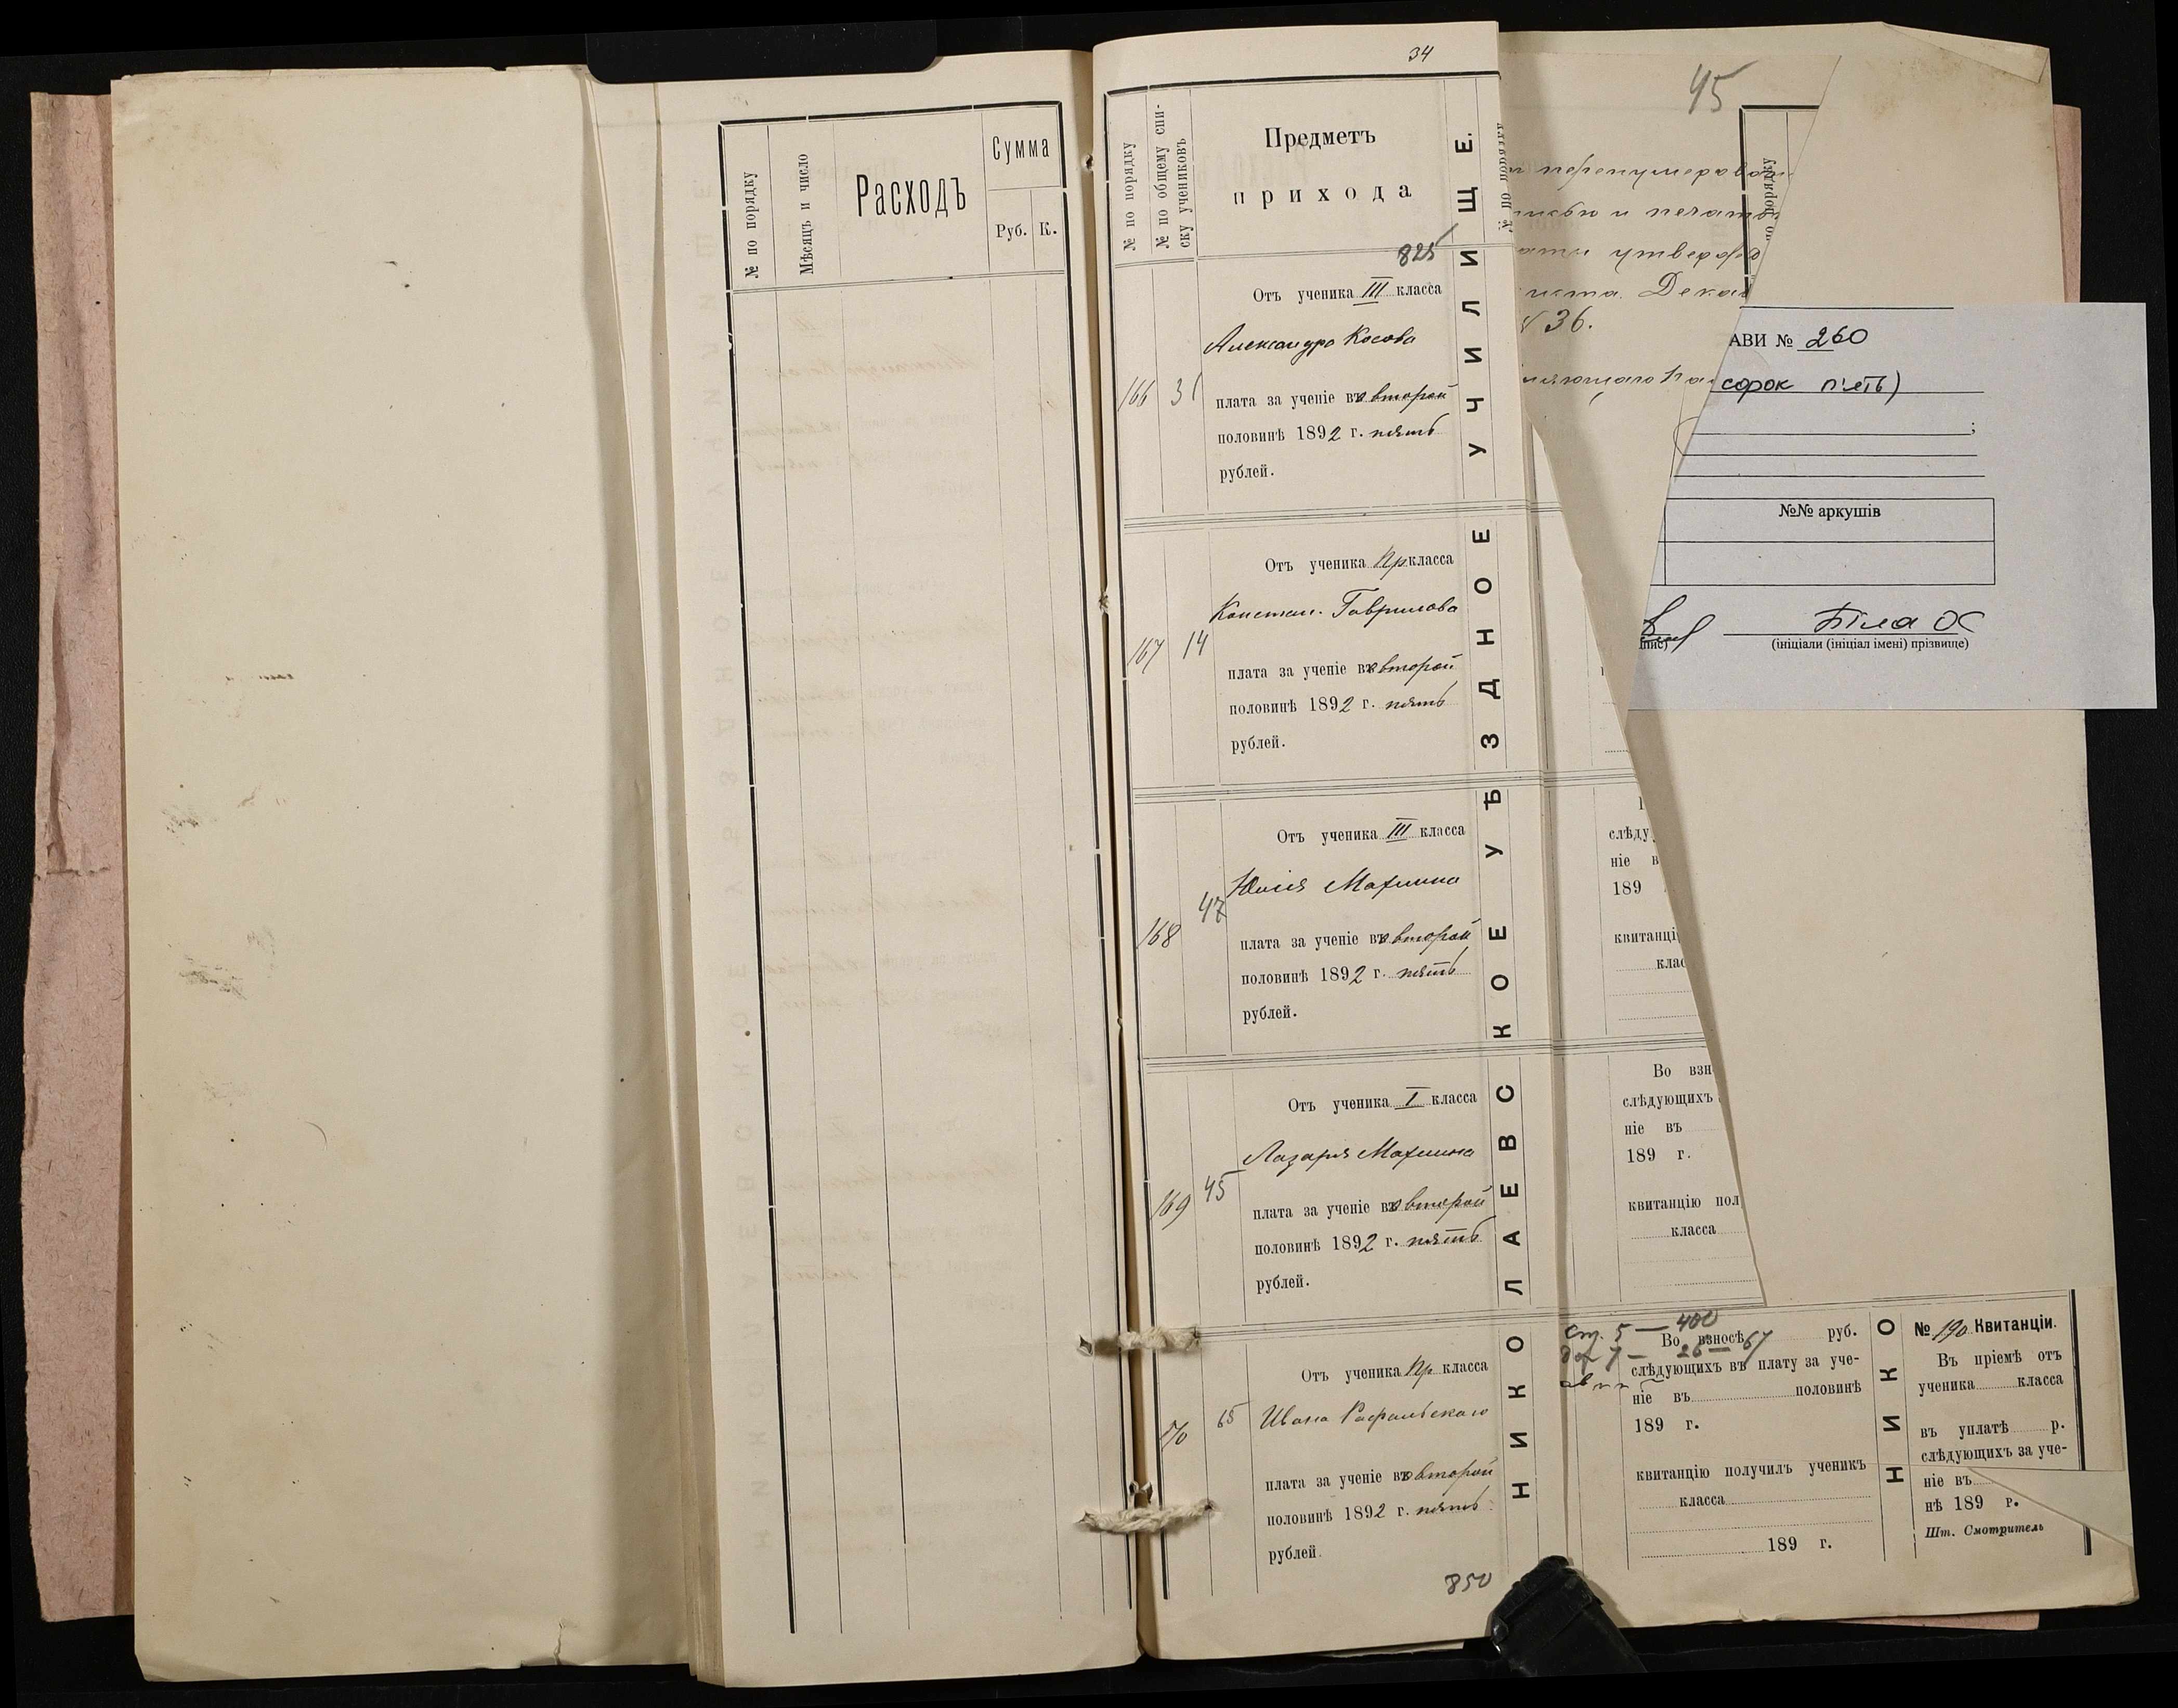 № по порядку
Мѣсяцъ и число
Расходъ
Сумма
Руб.
К.
34
№ по порядку
№ по общему спи-
ску учениковъ
Предметъ
прихода
825
166
31
Отъ ученика III класса
Александра Косова
плата за ученіе въ второй
половинѣ 1892 г. пять
рублей.
167
14
Отъ ученика Пр класса
Констан. Гаврилова
плата за ученіе въ второй
половинѣ 1892 г. пять
рублей.
168
47
Отъ ученика III класса
Юлія
плата за ученіе въ второй
половинѣ 1892 г. пять
рублей.
169
45
Отъ ученика I класса
Лазаря
плата за ученіе въ второй
половинѣ 1892 г. пять
рублей.
170
65
Отъ ученика Пр класса
Ивана
плата за ученіе въ второй
половинѣ 1892 г. пять
рублей.
850
НИКОЛАЕВСКОЕ УѢЗДНОЕ УЧИЛИЩЕ.
№ по порядку
45
по порядку
36.
слѣду
ніе в
189
квитанці
клас
Во взн
слѣдующихъ
ніе въ
189 г.
квитанцію пол
класса
ст. 5 — 400
Во взносѣ руб.
слѣдующихъ въ плату за уче-
ніе въ половинѣ
189 г.
квитанцію получилъ ученикъ
класса
189 г.
НИКО
№ 190 Квитанціи.
Въ пріемѣ отъ
ученика класса
въ уплатѣ р.
слѣдующихъ за уче-
ніе въ
нѣ 189 г.
Шт. Смотритель
АВИ № 260
сорок п'ять)
;
№№ аркушів
Біла ОС
(ініціали (ініціал імені) прізвище)